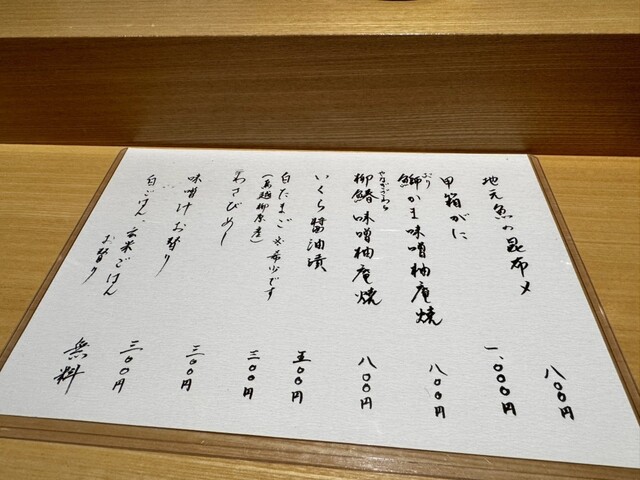 地元魚の昆布〆 八〇〇円
甲箱がに 一、〇〇〇円
ぶり
鰤かま味噌柚庵焼 八〇〇円
やなぎざわら
柳鰆味噌柚庵焼 八〇〇円
いくら醤油漬 五〇〇円
白たまご ※希少です 三〇〇円
(鳥越柳原産)
わさびめし 三〇〇円
味噌汁お替り 三〇〇円
白ごはん、玄米ごはん
お替り 無料